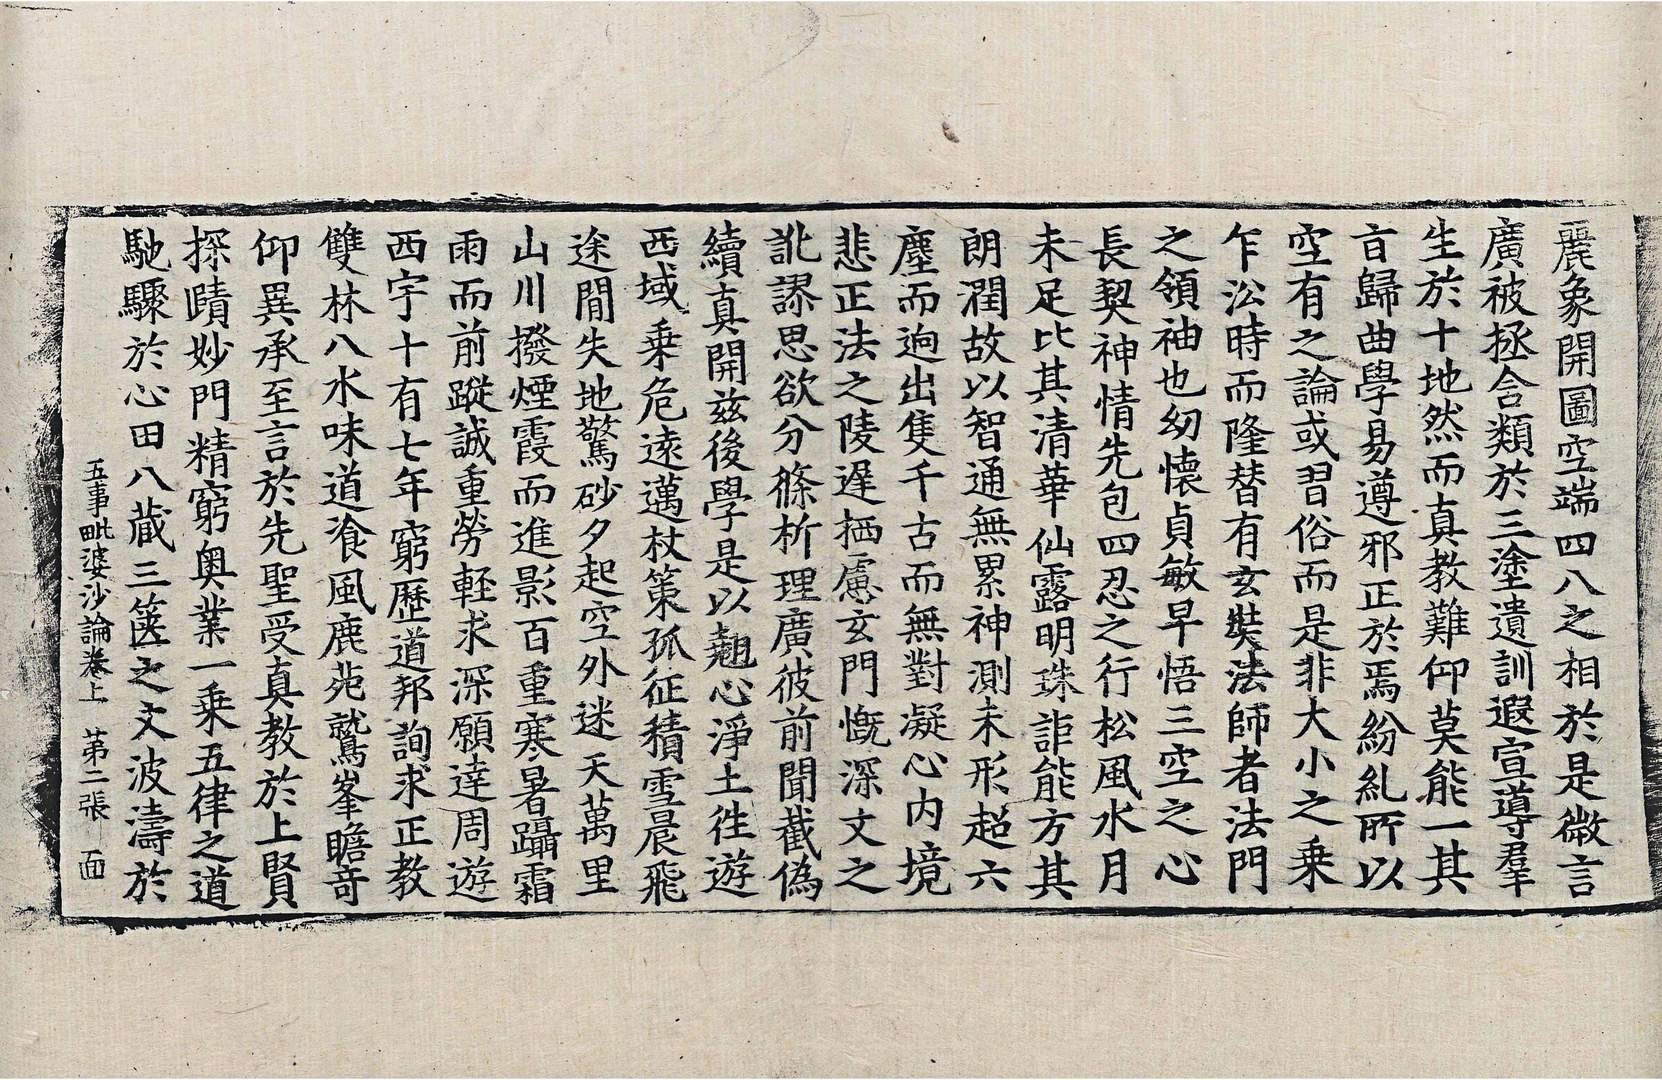 麗象開圖空端四八之相於是微言
廣被拯含類於三塗遺訓遐宣導羣
生於十地然而真教難仰莫能一其
𭥍歸曲學易遵邪正於焉紛糺所以
空有之論或習俗而是非大小之乗
乍㳂時而隆替有玄奘法師者法門
之領袖也幼懐貞敏早悟三空之心
長契神情先包四忍之行松風水月
未足比其清華仙露明珠詎能方其
朗潤故以智通無累神測未形超六
塵而逈出隻千古而無對凝心內境
悲正法之陵遲栖慮玄門慨深文之
訛謬思欲分條析理廣彼前聞截偽
續真開兹後學是以翹心淨土徃遊
西域乗危遠邁杖策孤征積雪晨飛
途間失地驚砂夕起空外迷天萬里
山川撥煙霞而進影百重寒暑躡霜
雨而前蹤誠重勞軽求深願達周遊
西宇十有七年窮歷道邦詢求正教
雙林八水味道飡風鹿苑鷲峯瞻竒
仰異承至言於先聖受真教於上賢
探賾妙門精窮奥業一乗五律之道
馳驟於心田八蔵三篋之文波濤於
五事毗婆沙論卷上 苐二張 面